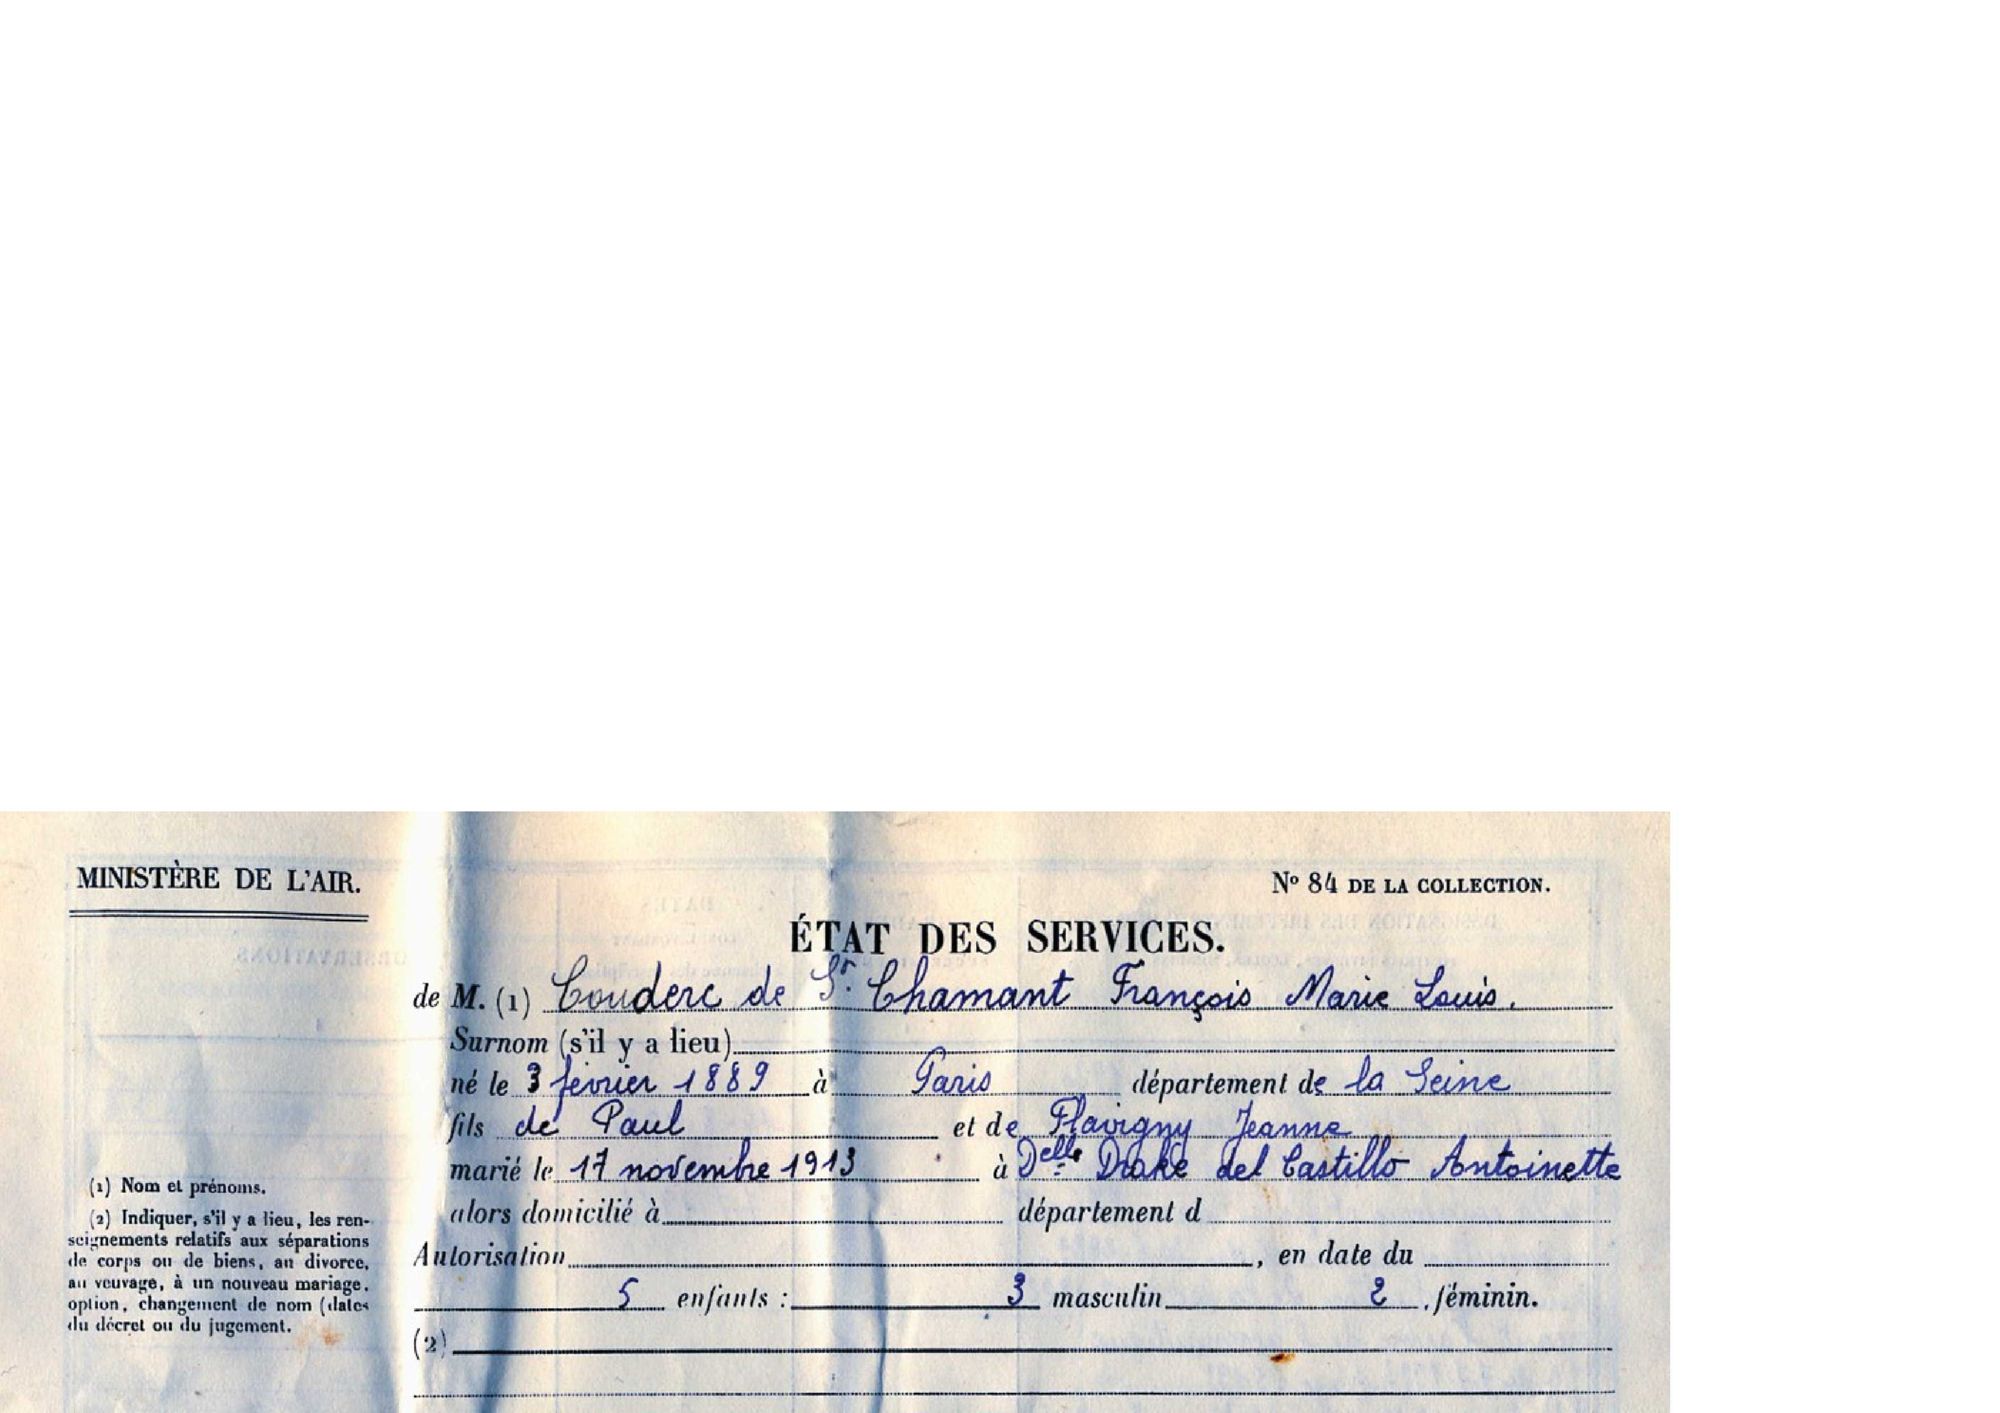 MINISTÈRE DE L'AIR.
N° 84 DE LA COLLECTION.
ÉTAT DES SERVICES.
de M. (1) Couderc de St. Chamant François Marie Louis.
Surnom (s'il y a lieu)
né le 3 février 1889 à Paris département de la Seine
fils de Paul et de Flavigny Jeanne
marié le 17 novembre 1913 à Delle Drake del Castillo Antoinette
alors domicilié à département d
Autorisation , en date du
5 enfants : 3 masculin 2 féminin.
(2)
(1) Nom et prénoms.
(2) Indiquer, s'il y a lieu, les ren-
seignements relatifs aux séparations
de corps ou de biens, au divorce,
au veuvage, à un nouveau mariage,
option, changement de nom (dates
du décret ou du jugement.